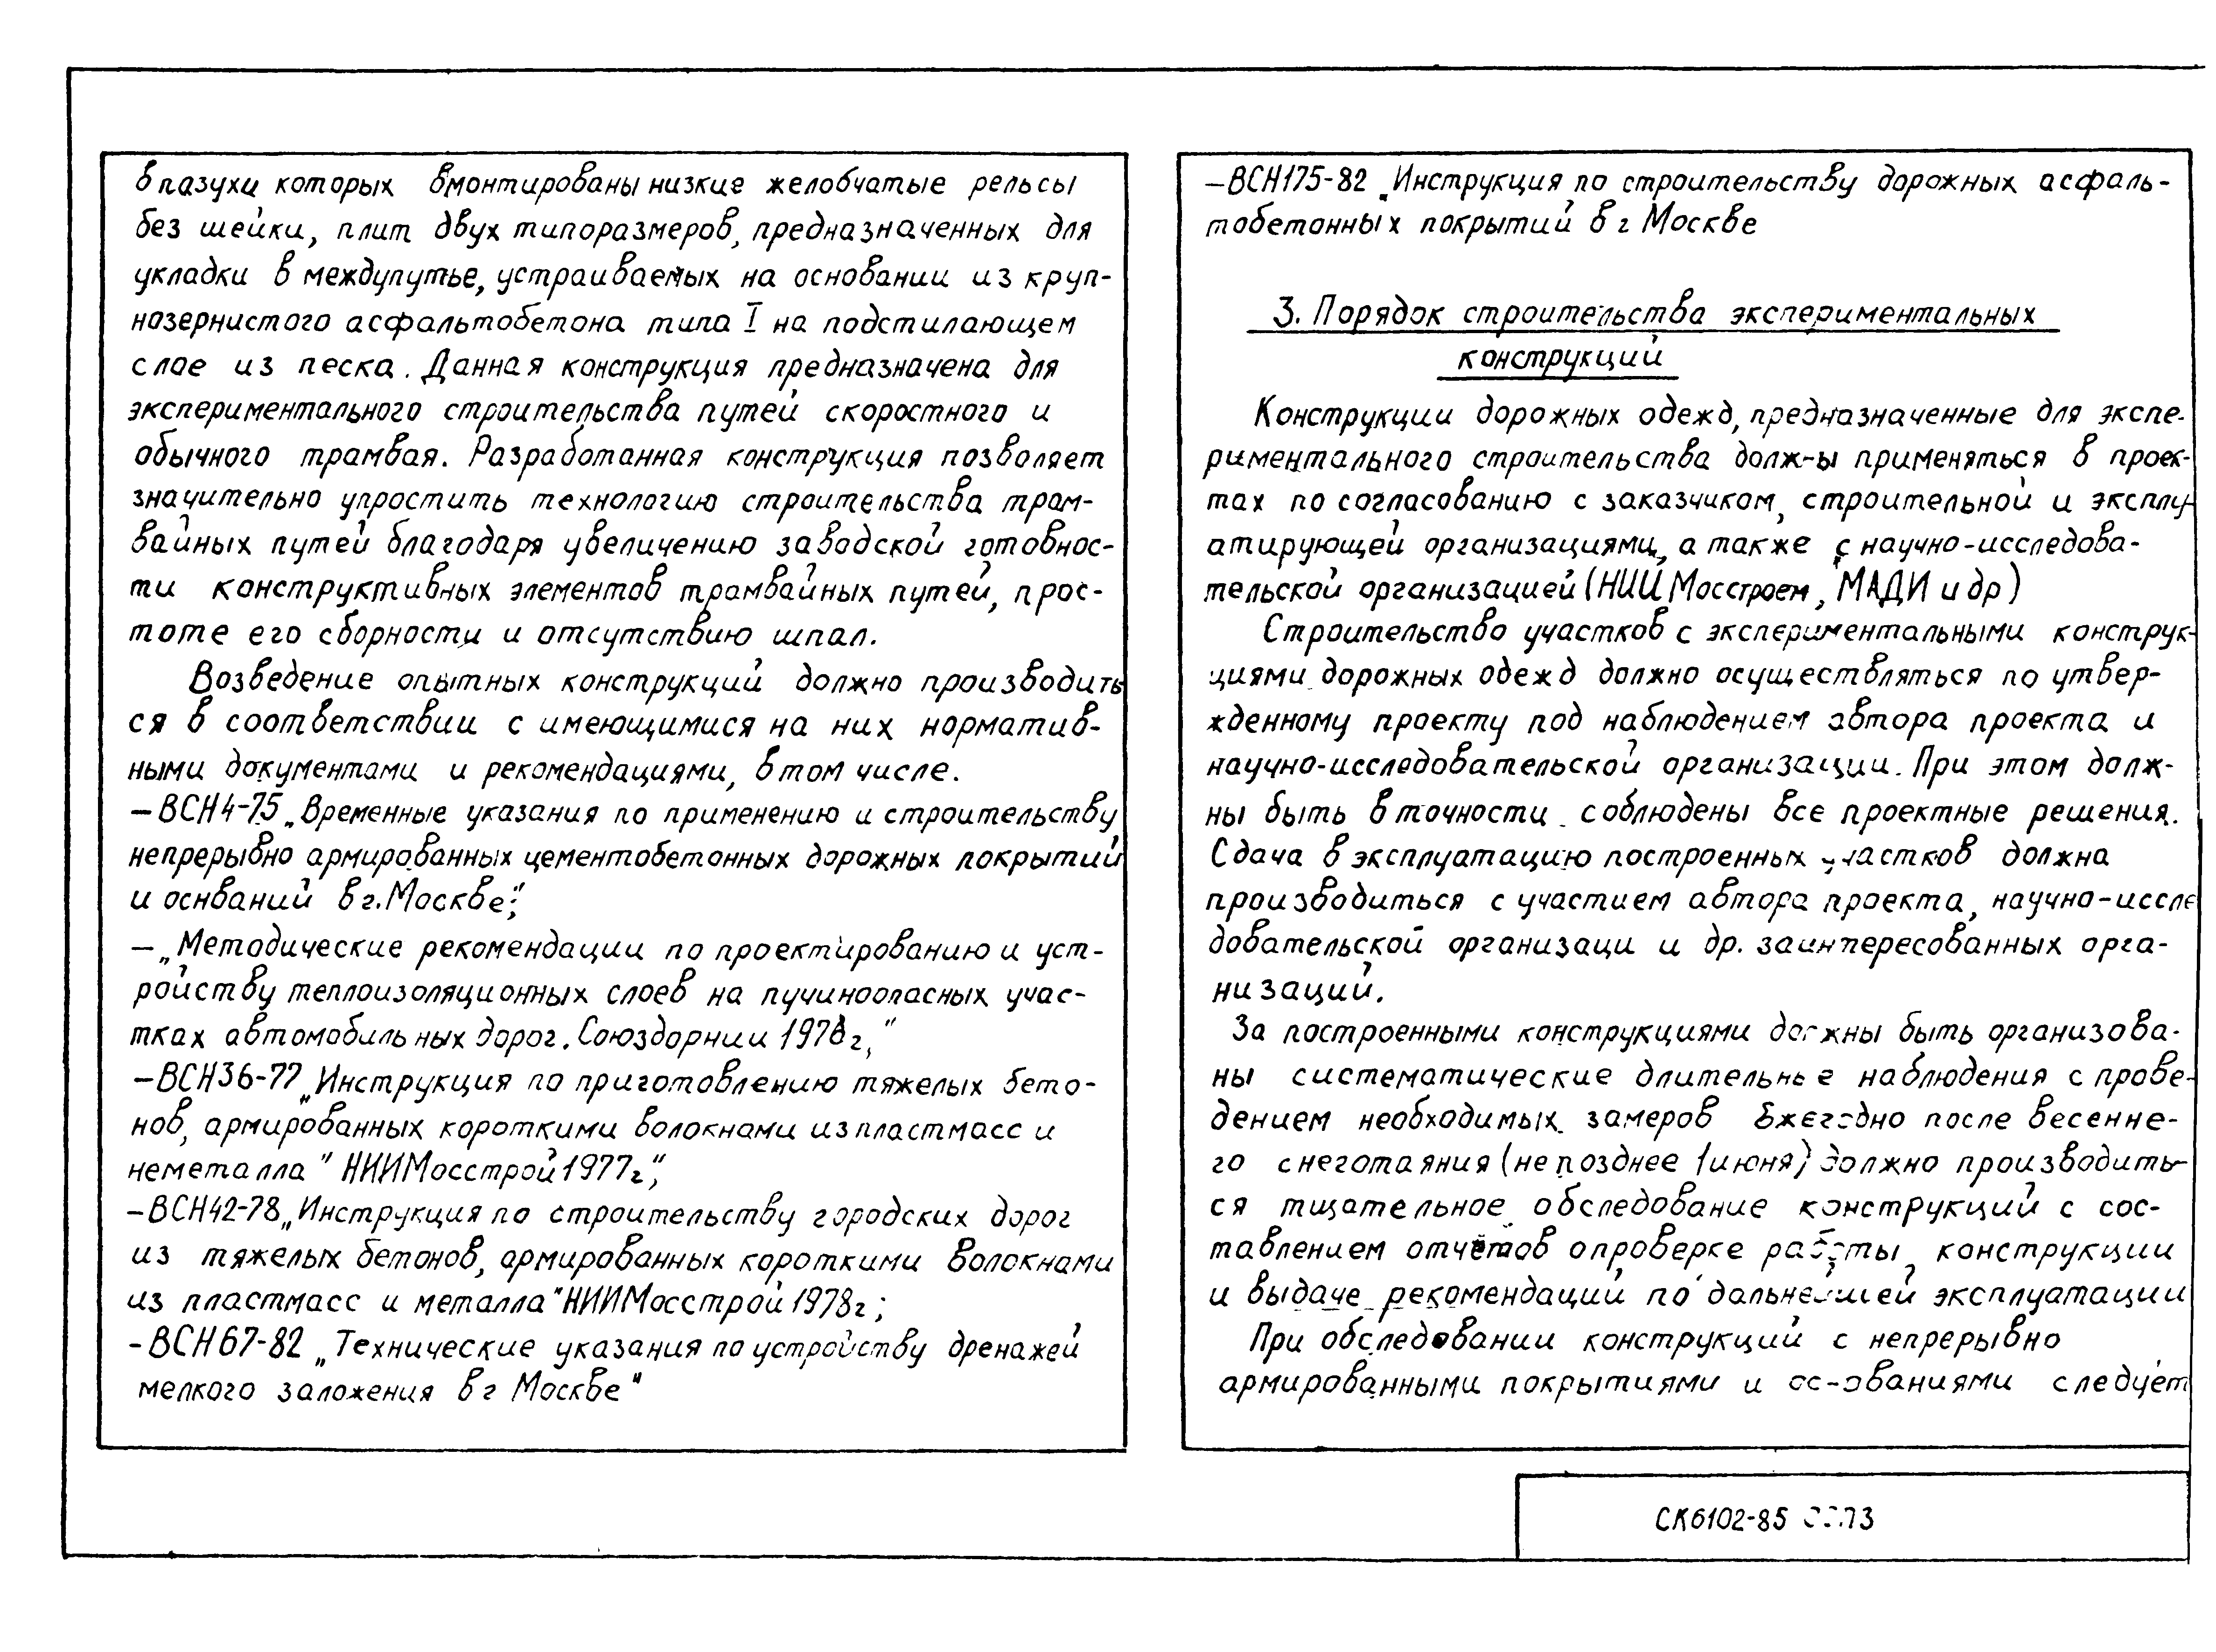 в пазухи которых вмонтированы низкие желобчатые рельсы
без шейки, плит двух типоразмеров, предназначенных для
укладки в междупутье, устраиваемых на основании из круп-
нозернистого асфальтобетона типа I на подстилающем
слое из песка. Данная конструкция предназначена для
экспериментального строительства путей скоростного и
обычного трамвая. Разработанная конструкция позволяет
значительно упростить технологию строительства трам-
вайных путей благодаря увеличению заводской готовнос-
ти конструктивных элементов трамвайных путей, прос-
тоте его сборности и отсутствию шпал.
Возведение опытных конструкций должно производить
ся в соответствии с имеющимися на них норматив-
ными документами и рекомендациями, в том числе.
—ВСН4-75 „Временные указания по применению и строительству
непрерывно армированных цементобетонных дорожных покрытий
и оснваний в г. Москве";
—„Методические рекомендации по проектированию и уст-
ройству теплоизоляционных слоев на пучиноопасных учас-
тках автомобильных дорог. Союздорнии 1978г,"
—ВСН36-77 „Инструкция по приготовлению тяжелых бето-
нов, армированных короткими волокнами из пластмасс и
неметалла" НИИМосстрой 1977г",
—ВСН42-78 „Инструкция по строительству городских дорог
из тяжелых бетонов, армированных короткими волокнами
из пластмасс и металла" НИИМосстрой 1978г;
-ВСН67-82 „Технические указания по устройству дренажей
мелкого заложения в г Москве"
—ВСН175-82 „Инструкция по строительству дорожных асфаль-
тобетонных покрытий в г Москве
3. Порядок строительства экспериментальных
конструкций
Конструкции дорожных одежд, предназначенные для экспе-
риментального строительства должны применяться в проек-
тах по согласованию с заказчиком, строительной и эксплу-
атирующей организациями, а также с научно-исследова-
тельской организацией (НИИ Мосстроем, МАДИ и др)
Строительство участков с экспериментальными конструк-
циями дорожных одежд должно осуществляться по утвер-
жденному проекту под наблюдением автора проекта и
научно-исследовательской организации. При этом долж-
ны быть в точности соблюдены все проектные решения.
Сдача в эксплуатацию построенных участков должна
производиться с участием автора проекта, научно-иссле
довательской организаци и др. заинтересованных орга-
низаций.
За построенными конструкциями должны быть организова-
ны систематические длительные наблюдения с прове-
дением необходимых замеров Ежегодно после весенне-
го снеготаяния (не позднее 1 июня) должно производить-
ся тщательное обследование конструкций с сос-
тавлением отчётов о проверке работы конструкции
и выдаче рекомендаций по дальнейшей эксплуатации
При обследовании конструкций с непрерывно
армированными покрытиями и основаниями следует
СК6102-85